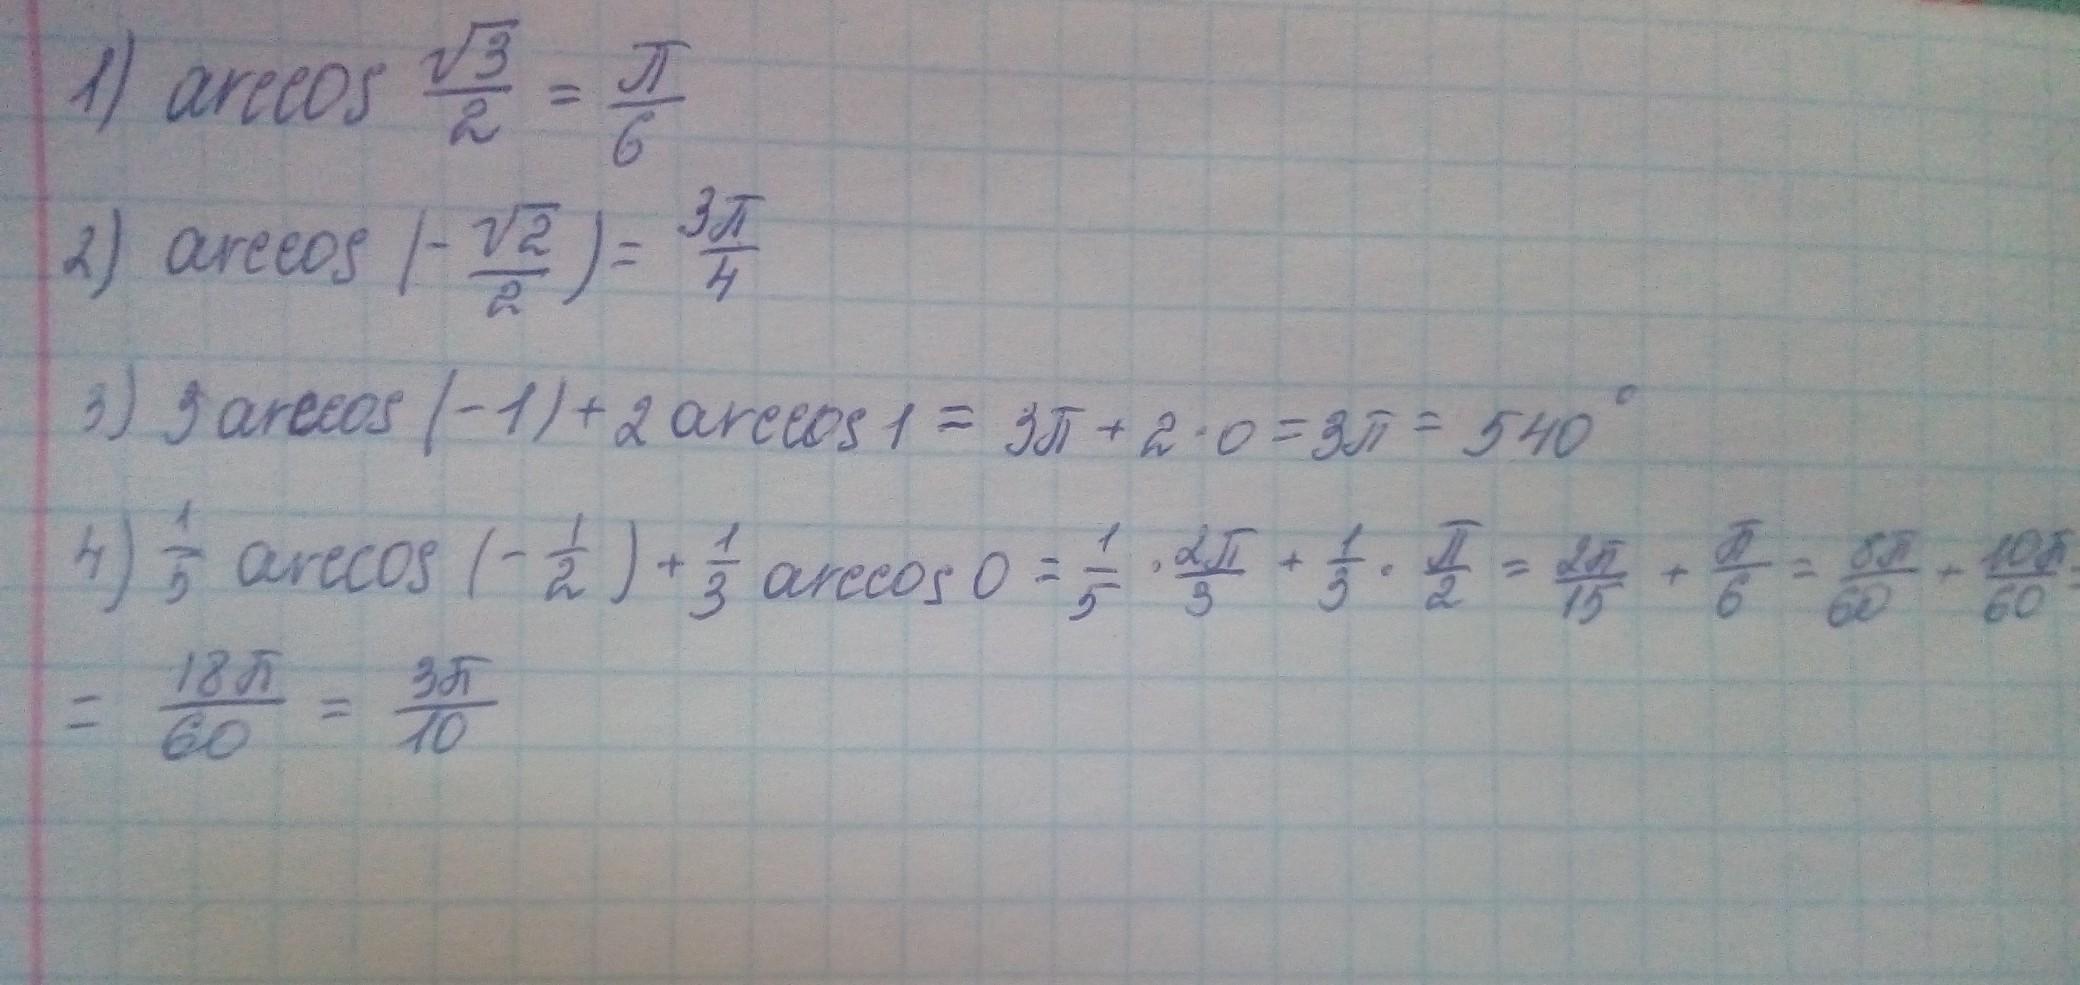 1) arccos √3/2 = π/6
2) arccos (-√2/2) = 3π/4
3) 3 arccos (-1) + 2 arccos 1 = 3π + 2·0 = 3π = 540°
4) 1/5 arccos (-1/2) + 1/3 arccos 0 = 1/5 · 2π/3 + 1/3 · π/2 = 2π/15 + π/6 = 8π/60 + 10π/60 =
= 18π/60 = 3π/10